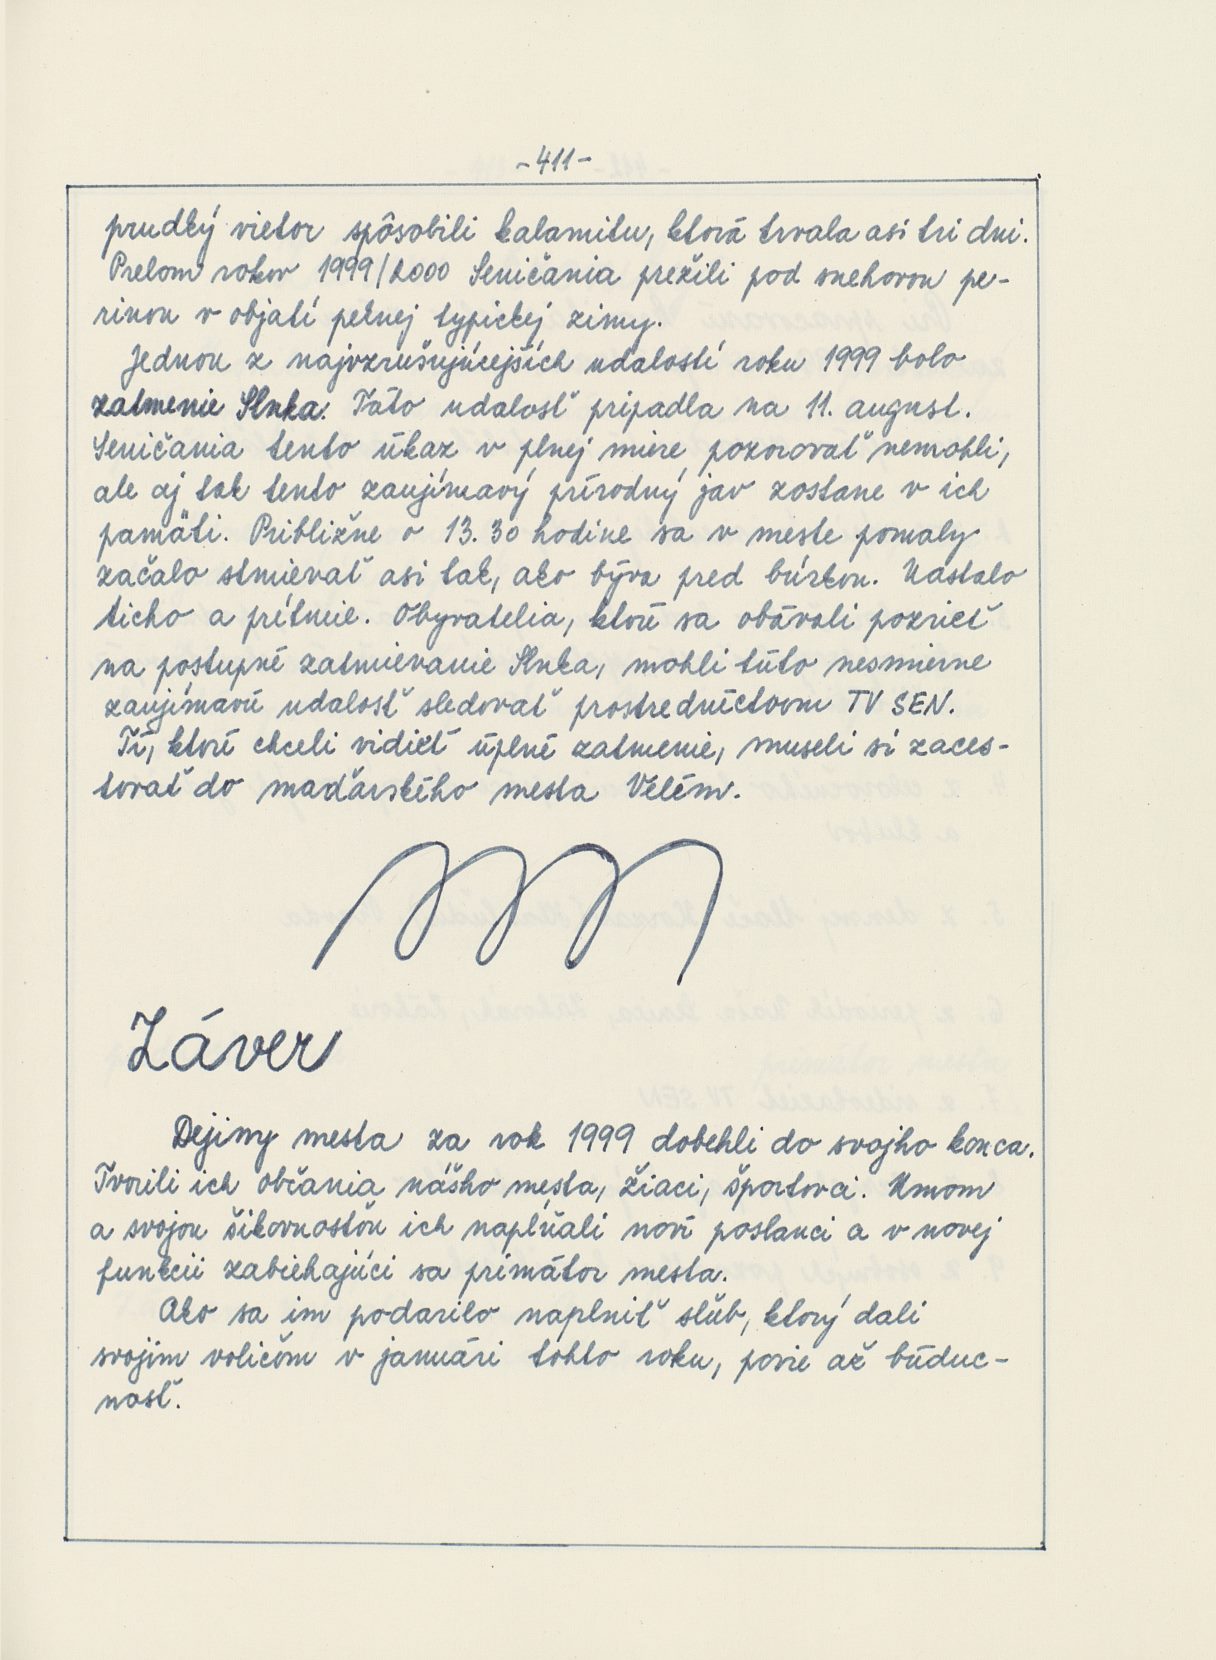 -411-
prudký vietor spôsobili kalamitu, ktorá trvala asi tri dni.
Prelom rokov 1999/2000 Seničania prežili pod snehovou pe-
rinou v objatí peknej typickej zimy.
Jednou z najvzrušujúcejších udalostí roku 1999 bolo
zatmenie Slnka. Táto udalosť pripadla na 11. august.
Seničania tento úkaz v plnej miere pozorovať nemohli,
ale aj tak tento zaujímavý prírodný jav zostane v ich
pamäti. Približne o 13.30 hodine sa v meste pomaly
začalo stmievať asi tak, ako býva pred búrkou. Nastalo
ticho a prítmie. Obyvatelia, ktorí sa obávali pozrieť
na postupné zatmievanie Slnka, mohli túto nesmierne
zaujímavú udalosť sledovať prostredníctvom TV SEN.
Tí, ktorí chceli vidieť úplné zatmenie, museli si zaces-
tovať do maďarského mesta Velém.
Záver
Dejiny mesta za rok 1999 dobehli do svojho konca.
Tvorili ich občania nášho mesta, žiaci, športovci. Umom
a svojou šikovnosťou ich napĺňali noví poslanci a v novej
funkcii zabiehajúci sa primátor mesta.
Ako sa im podarilo naplniť sľub, ktorý dali
svojim voličom v januári tohto roku, povie až budúc-
nosť.